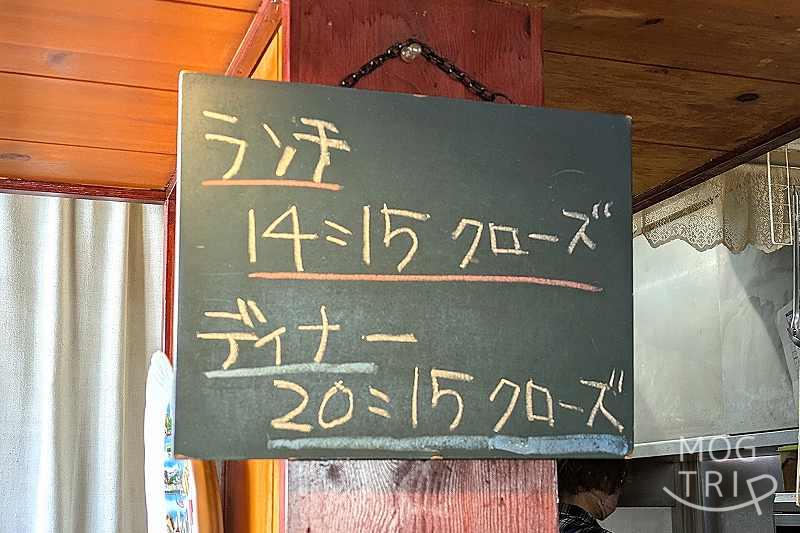 ランチ
14=15 クローズ
ディナー
20=15 クローズ
MOG
TRIP